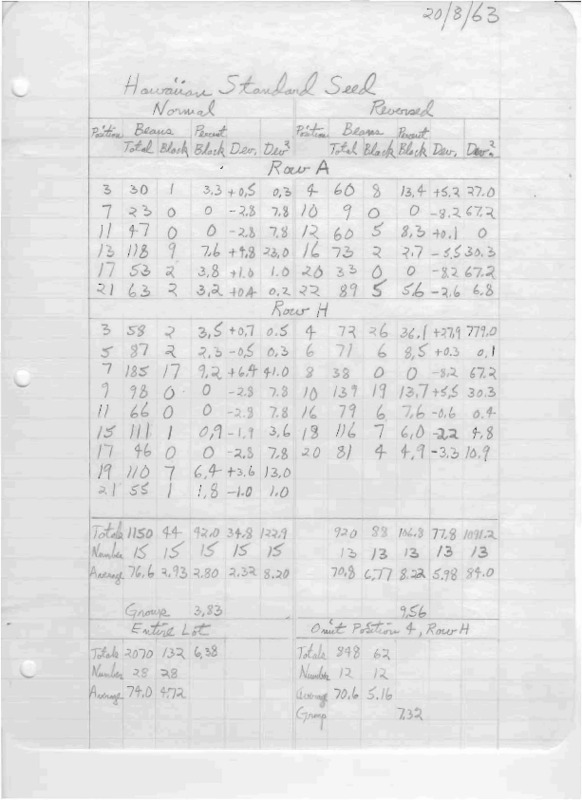 20/8/63
Hawaiian Standard Seed
Normal Reversed
Position Beans Percent Position Beans Percent
Total Black Black Dev. Dev² Total Black Black Dev. Dev.²
Row A
3 30 1 3,3 +0,5 0,3 4 60 8 13,4 +5,2 27.0
7 23 0 0 -2.8 7.8 10 9 0 0 -8,2 67.2
11 47 0 0 -2.8 7.8 12 60 5 8,3 +0.1 0
13 118 9 7.6 +4.8 23,0 16 73 2 2.7 -5,5 30.3
17 53 2 3,8 +1.0 1.0 20 33 0 0 -8.2 67.2
21 63 2 3,2 +0.4 0.2 22 89 5 5.6 -2.6 6.8
Row H
3 58 2 3,5 +0,7 0.5 4 72 26 36.1 +27,9 779.0
5 87 2 2,3 -0,5 0,3 6 71 6 8,5 +0.3 0,1
7 185 17 9,2 +6.4 41.0 8 38 0 0 -8,2 67.2
9 98 0 0 -2.8 7.8 10 139 19 13.7 +5,5 30.3
11 66 0 0 -2.8 7.8 16 79 6 7,6 -0,6 0.4
15 111 1 0,9 -1.9 3,6 18 116 7 6,0 -2.2 4,8
17 46 0 0 -2.8 7.8 20 81 4 4,9 -3.3 10.9
19 110 7 6,4 +3.6 13,0
21 55 1 1,8 -1.0 1.0
Totals 1150 44 42.0 34.8 122.9 920 88 106.8 77.8 1091.2
Number 15 15 15 15 15 13 13 13 13 13
Average 76,6 2,93 2.80 2.32 8.20 70.8 6,77 8.22 5.98 84.0
Group 3,83 9,56
Entire Lot Omit Position 4, Row H
Totals 2070 132 6,38 Totals 848 62
Number 28 28 Number 12 12
Average 74.0 4.72 Average 70.6 5.16
Group 7.32